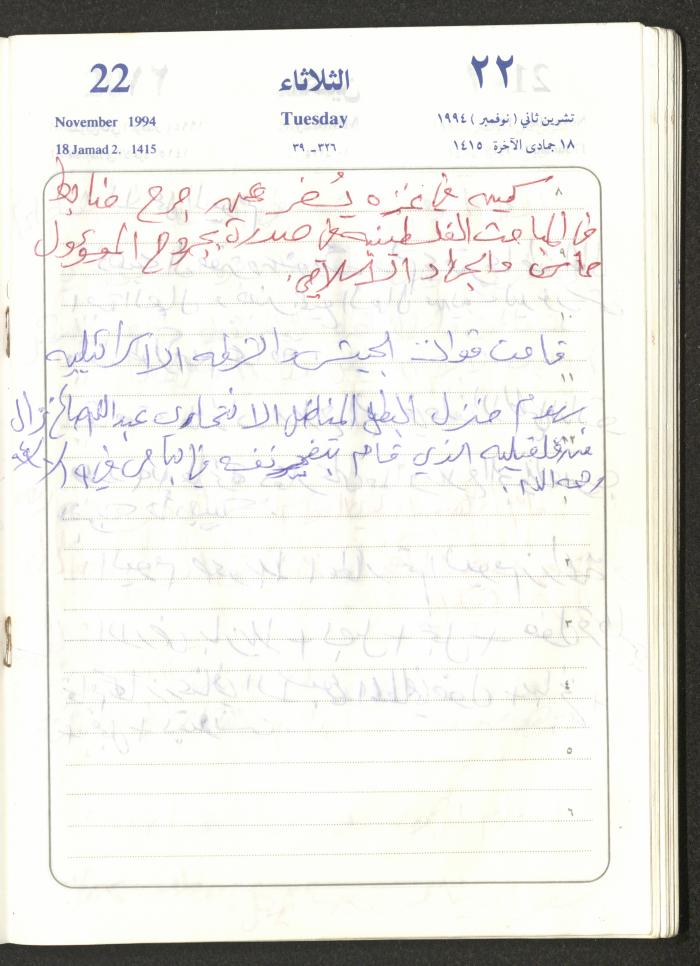 22 الثلاثاء ٢٢
November 1994 Tuesday تشرين ثاني ( نوفمبر ) ١٩٩٤
18 Jamad 2. 1415 ٣٢٦ـ٣٩ ١٨ جمادى الآخرة ١٤١٥
٨
كمين في غزه يسفر عن جرح ضابط
في المباحث الفلسطينيه في صدرة بجروح
٩
والجهاد الاسلامي.
١٠
قامت قوات الجيش والشرطه الاسرائيليه
١١
بهدم منزل البطل المناضل الانتحاري عبد صالح نزال
١٢
قلقيليه الذي قام بتفجير نفسه في باص في
رحمه الله.
١
٢
٣
٤
٥
٦